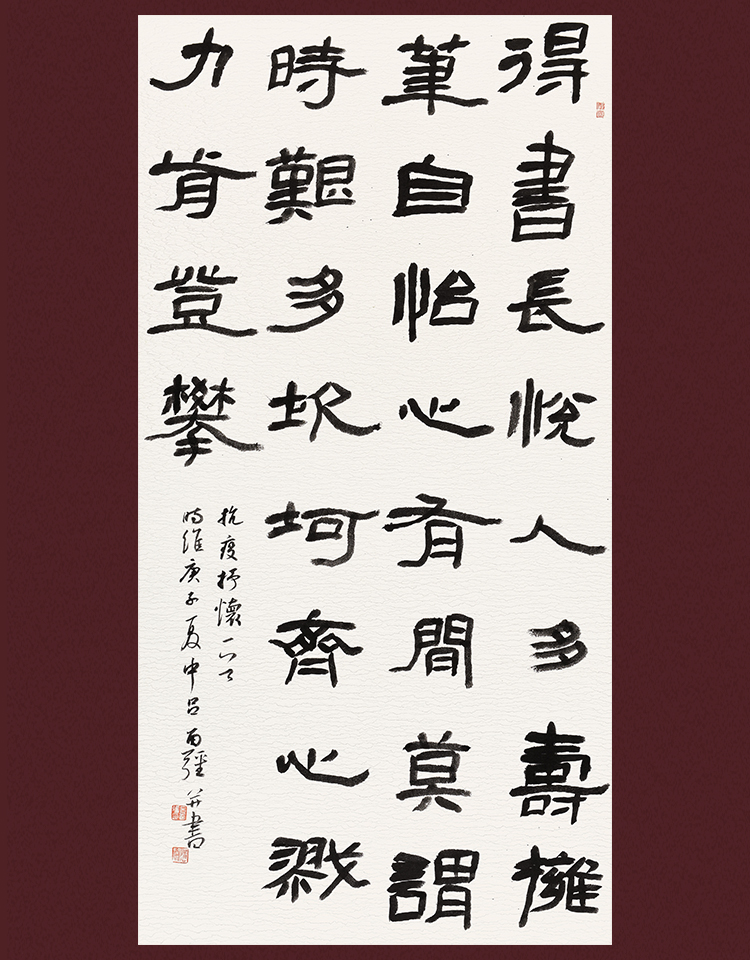 得書長悅人多壽擁
筆自怡心有閒莫謂
時艱多坎坷齊心戮
力肯登攀
抗疫抒懷
時維庚子夏中呂并書